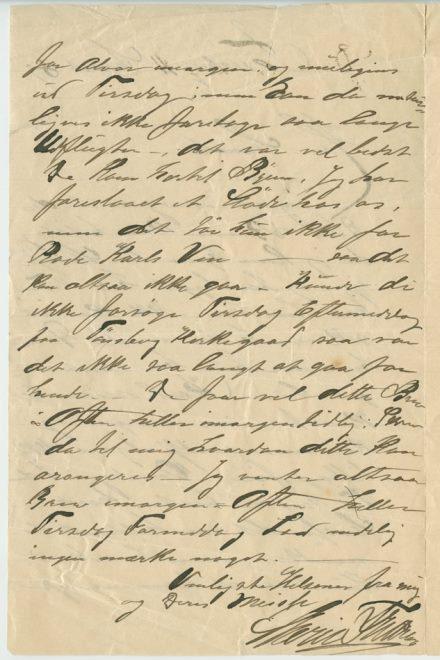 for Alvor imorgen, og muligens
ved Tirsdag; men kan da
ikke foretage saa lange
Udflugter –, det var vel bedst
De kom hertil Byen, jeg har
foreslaaet et Møde hos os,
men det tør hun ikke for
Bode Karls Vin — saa det
kan altsaa ikke gaa – Kunde De
ikke forsøge Tirsdag Eftermiddag
paa Kirkegaard saa var
det ikke saa langt at gaa for
hende. – De faar vel dette Brev
i Aften eller imorgen tidlig. Skriv
da til mig hvordan dette kan
arangeres – Jeg venter altsaa
Brev imorgen Aften eller
Tirsdag Formiddag Lad endelig
ingen mærke noget. —
Venligste Hilsener fra mig
og Deres
Maria